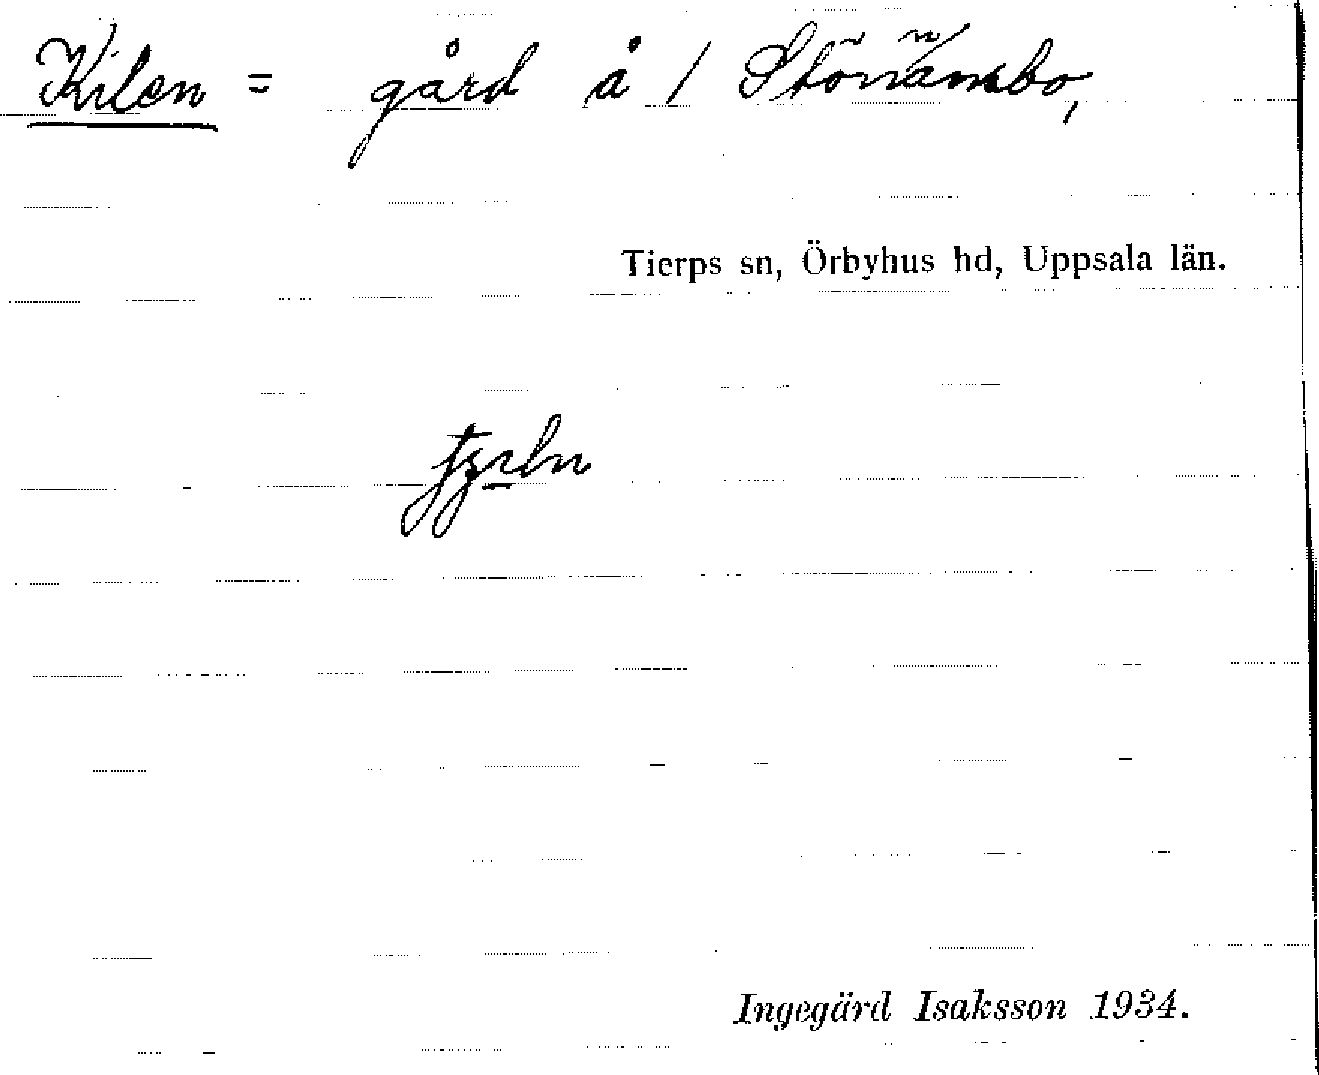 Kilen = gård å / Stönämbo,
Tierps sn, Örbyhus hd, Uppsala län.
Ingegärd Isaksson 1934.